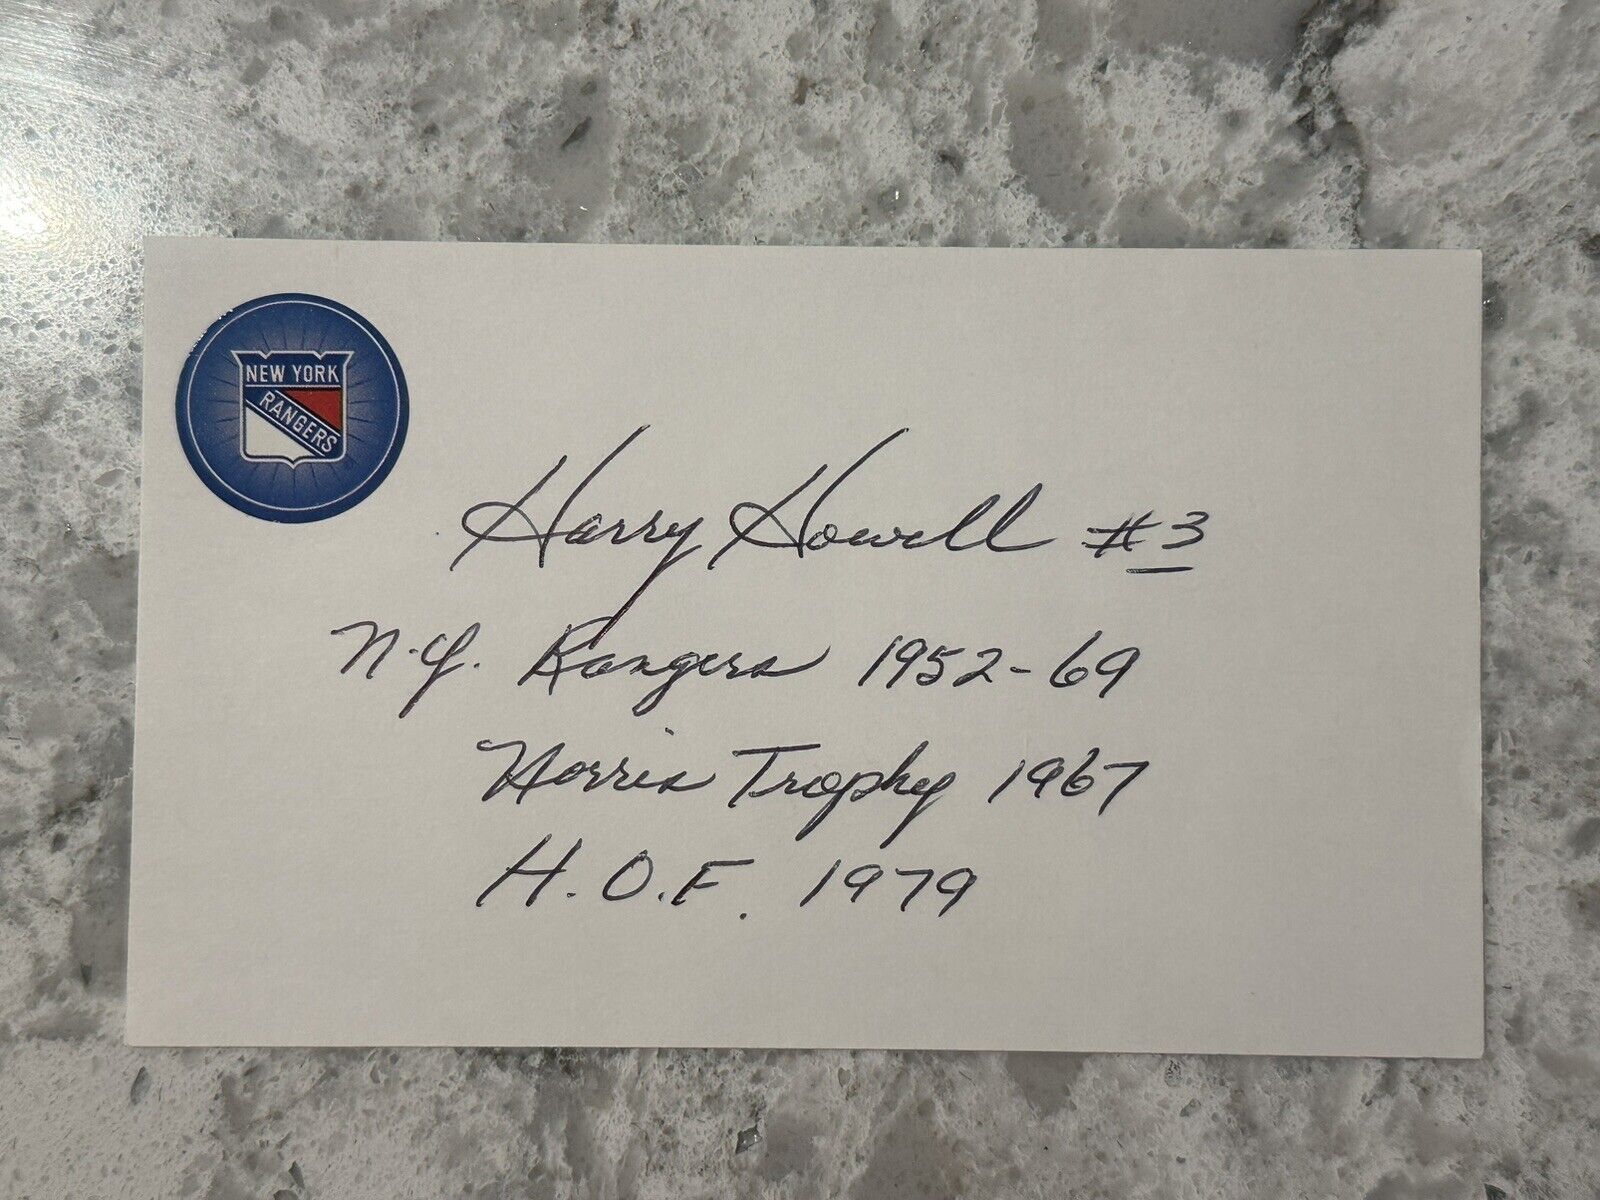 NEW YORK
RANGERS
Harry Howell #3
N.Y. Rangers 1952-69
Norris Trophy 1967
H.O.F. 1979